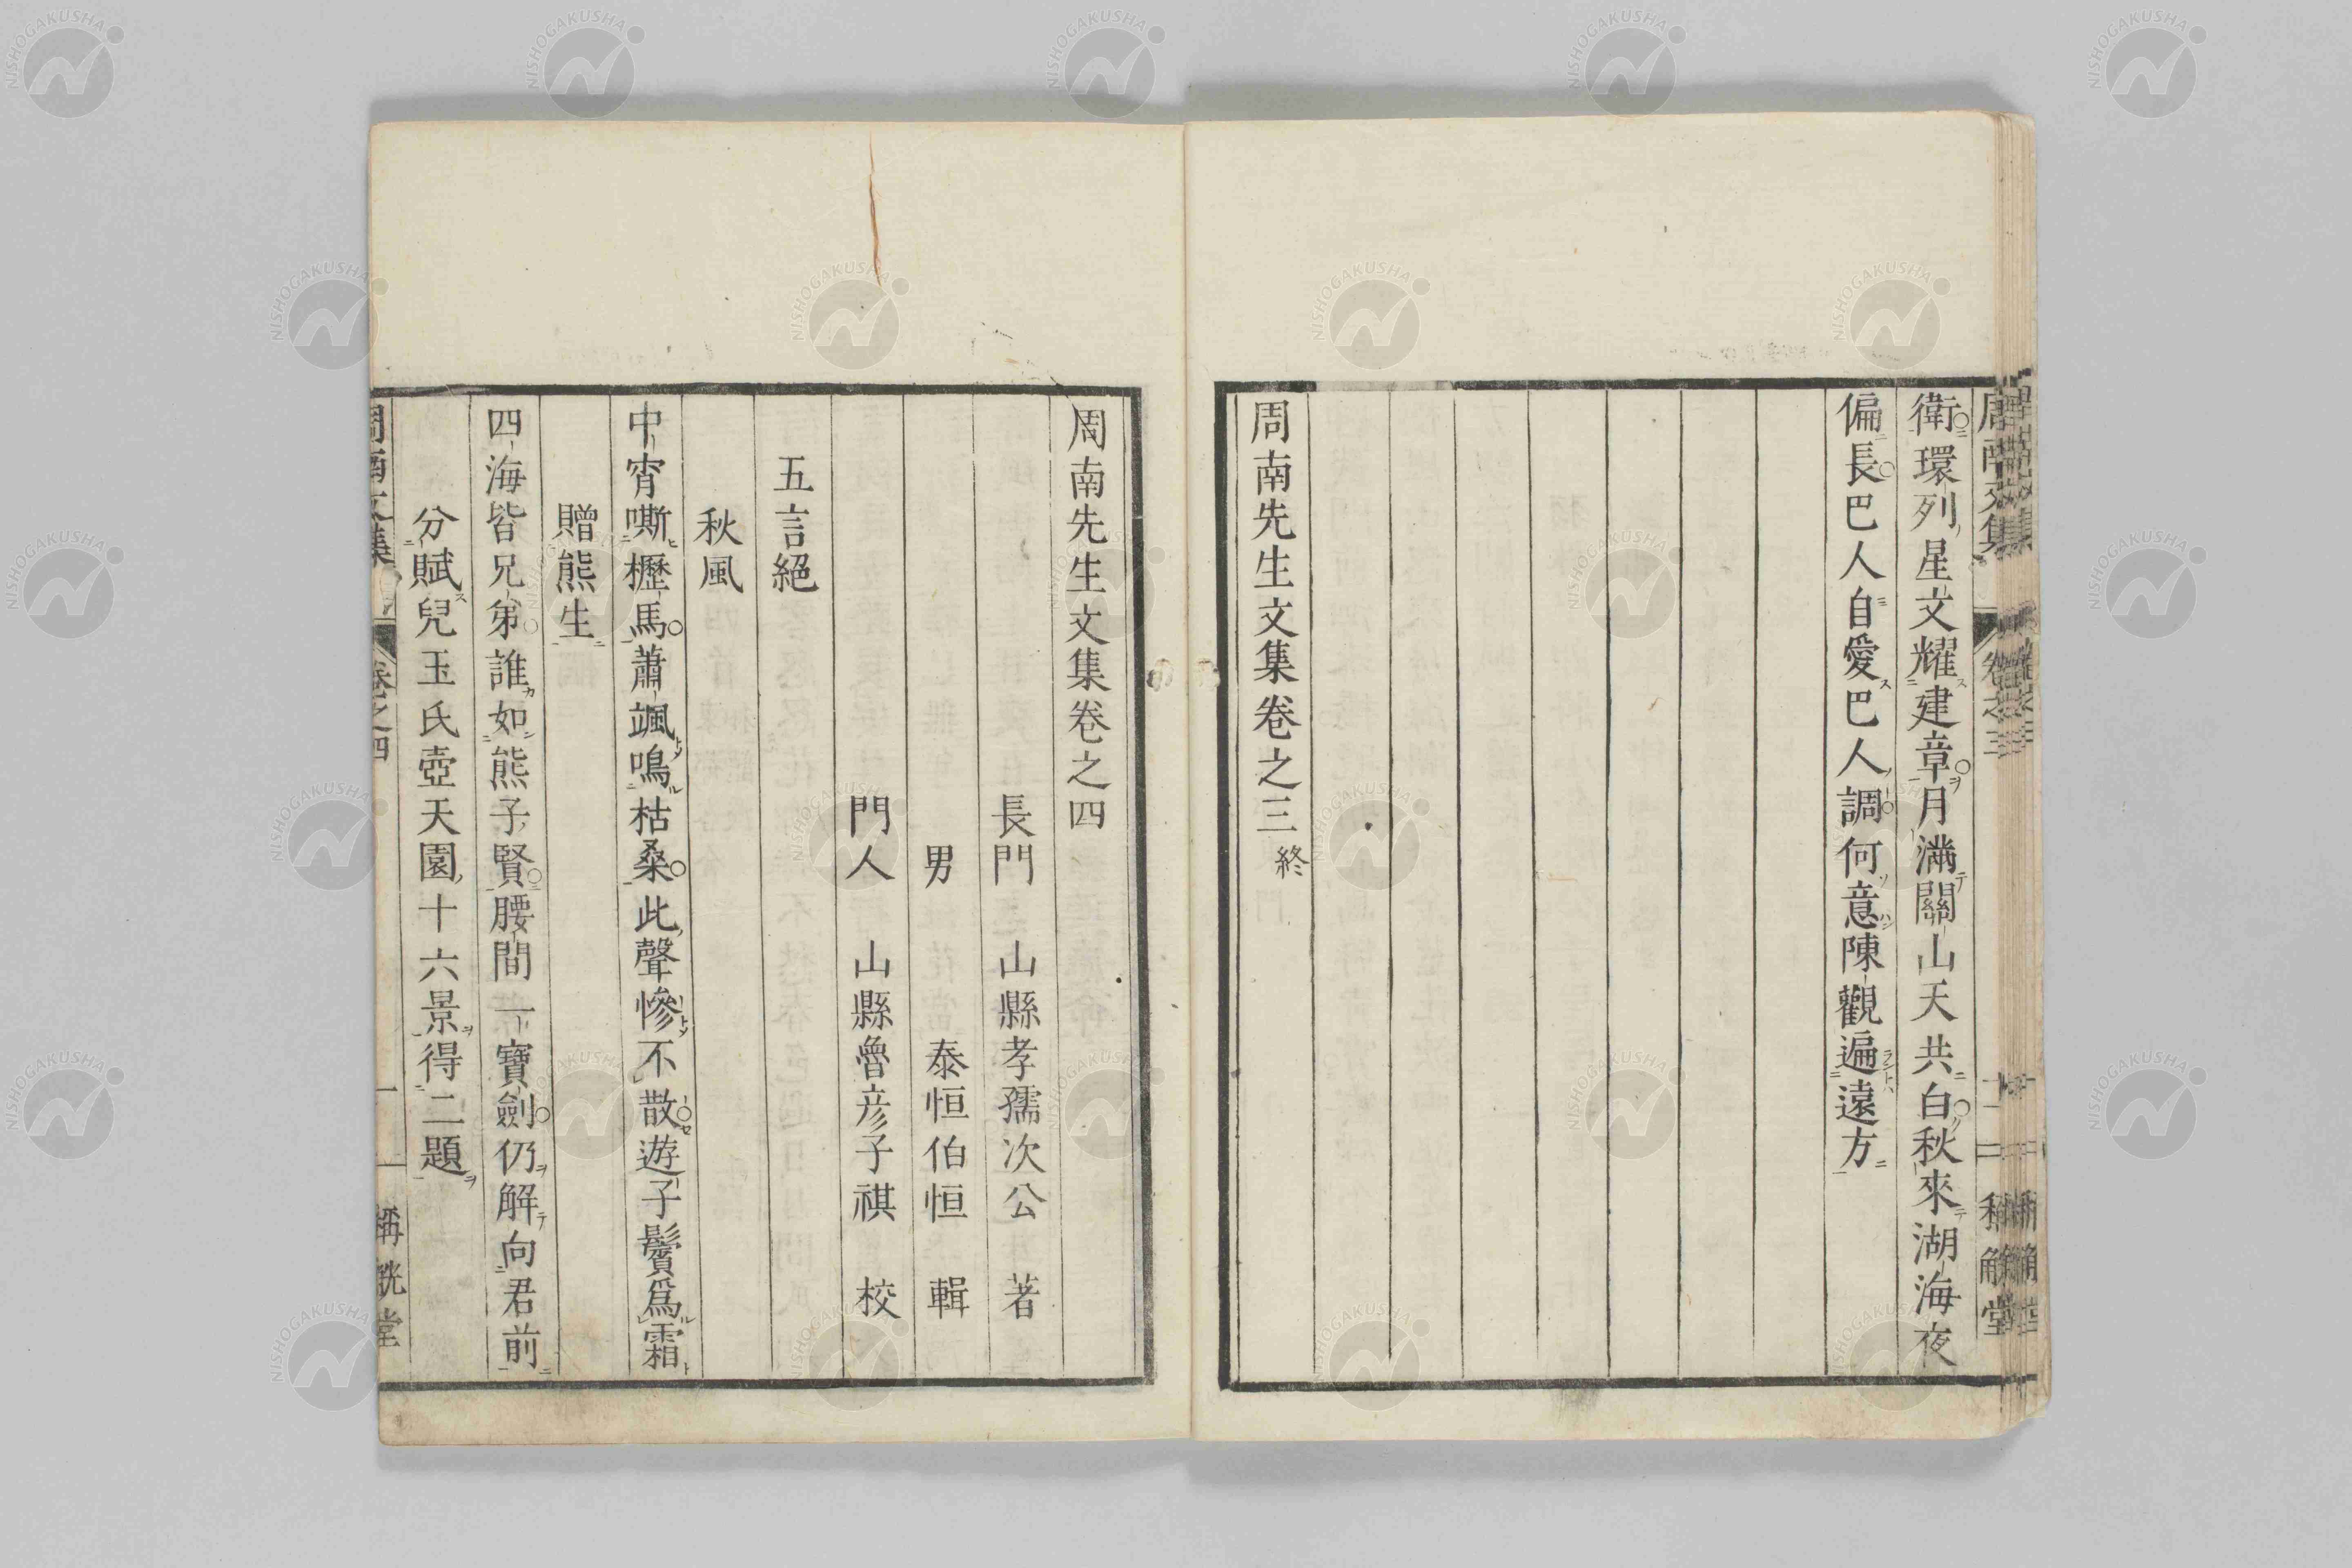 衛環列星文耀建章月滿關山天共白秋來湖海夜
偏長巴人自愛巴人調何意陳觀遍遠方
周南先生文集卷之三終
周南先生文集卷之四
長門 山縣孝孺次公 著
男 泰恒伯恒 輯
門人 山縣魯彦子祺 校
五言絕
秋風
中宵嘶櫪馬蕭颯鳴枯桑此聲慘不散遊子鬢爲霜
贈熊生
四海皆兄弟誰如熊子賢腰間一寶劍仍解向君前
分賦兒玉氏壺天園十六景得二題
周南文集 卷之四 一 稱觥堂
NISHOGAKUSHA